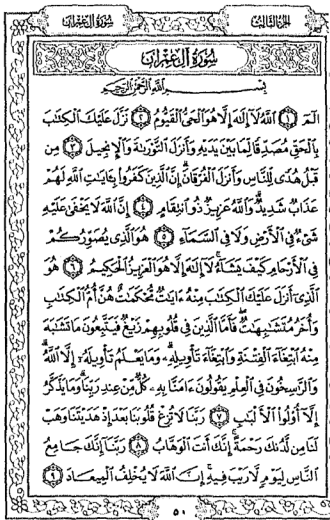 سُورَةُ آلِ عِمْرَانَ
الجزء الثالث
سُورَةُ آلِ عِمْرَانَ
بِسْمِ اللَّهِ الرَّحْمَٰنِ الرَّحِيمِ
الٓمٓ ۝١ ٱللَّهُ لَآ إِلَٰهَ إِلَّا هُوَ ٱلْحَىُّ ٱلْقَيُّومُ ۝٢ نَزَّلَ عَلَيْكَ ٱلْكِتَٰبَ
بِٱلْحَقِّ مُصَدِّقًا لِّمَا بَيْنَ يَدَيْهِ وَأَنزَلَ ٱلتَّوْرَىٰةَ وَٱلْإِنجِيلَ ۝٣ مِن
قَبْلُ هُدًى لِّلنَّاسِ وَأَنزَلَ ٱلْفُرْقَانَ ۗ إِنَّ ٱلَّذِينَ كَفَرُوا۟ بِـَٔايَٰتِ ٱللَّهِ لَهُمْ
عَذَابٌ شَدِيدٌ ۗ وَٱللَّهُ عَزِيزٌ ذُو ٱنتِقَامٍ ۝٤ إِنَّ ٱللَّهَ لَا يَخْفَىٰ عَلَيْهِ
شَىْءٌ فِى ٱلْأَرْضِ وَلَا فِى ٱلسَّمَآءِ ۝٥ هُوَ ٱلَّذِى يُصَوِّرُكُمْ
فِى ٱلْأَرْحَامِ كَيْفَ يَشَآءُ ۚ لَآ إِلَٰهَ إِلَّا هُوَ ٱلْعَزِيزُ ٱلْحَكِيمُ ۝٦ هُوَ
ٱلَّذِىٓ أَنزَلَ عَلَيْكَ ٱلْكِتَٰبَ مِنْهُ ءَايَٰتٌ مُّحْكَمَٰتٌ هُنَّ أُمُّ ٱلْكِتَٰبِ
وَأُخَرُ مُتَشَٰبِهَٰتٌ ۖ فَأَمَّا ٱلَّذِينَ فِى قُلُوبِهِمْ زَيْغٌ فَيَتَّبِعُونَ مَا تَشَٰبَهَ
مِنْهُ ٱبْتِغَآءَ ٱلْفِتْنَةِ وَٱبْتِغَآءَ تَأْوِيلِهِۦ ۗ وَمَا يَعْلَمُ تَأْوِيلَهُۥٓ إِلَّا ٱللَّهُ ۗ
وَٱلرَّٰسِخُونَ فِى ٱلْعِلْمِ يَقُولُونَ ءَامَنَّا بِهِۦ كُلٌّ مِّنْ عِندِ رَبِّنَا ۗ وَمَا يَذَّكَّرُ
إِلَّآ أُو۟لُوا۟ ٱلْأَلْبَٰبِ ۝٧ رَبَّنَا لَا تُزِغْ قُلُوبَنَا بَعْدَ إِذْ هَدَيْتَنَا وَهَبْ
لَنَا مِن لَّدُنكَ رَحْمَةً ۚ إِنَّكَ أَنتَ ٱلْوَهَّابُ ۝٨ رَبَّنَآ إِنَّكَ جَامِعُ
ٱلنَّاسِ لِيَوْمٍ لَّا رَيْبَ فِيهِ ۚ إِنَّ ٱللَّهَ لَا يُخْلِفُ ٱلْمِيعَادَ ۝٩
٥٠